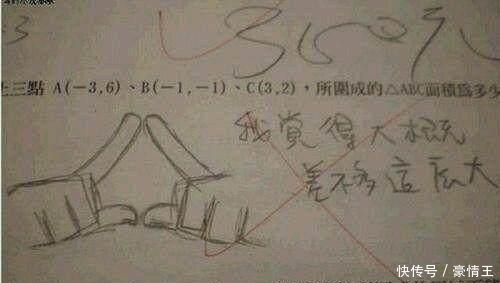 -3
上三點 A(-3,6)、B(-1,-1)、C(3,2),所圍成的△ABC面積為多少
我覺得大概
差不多這麼大
快传号/豪情王